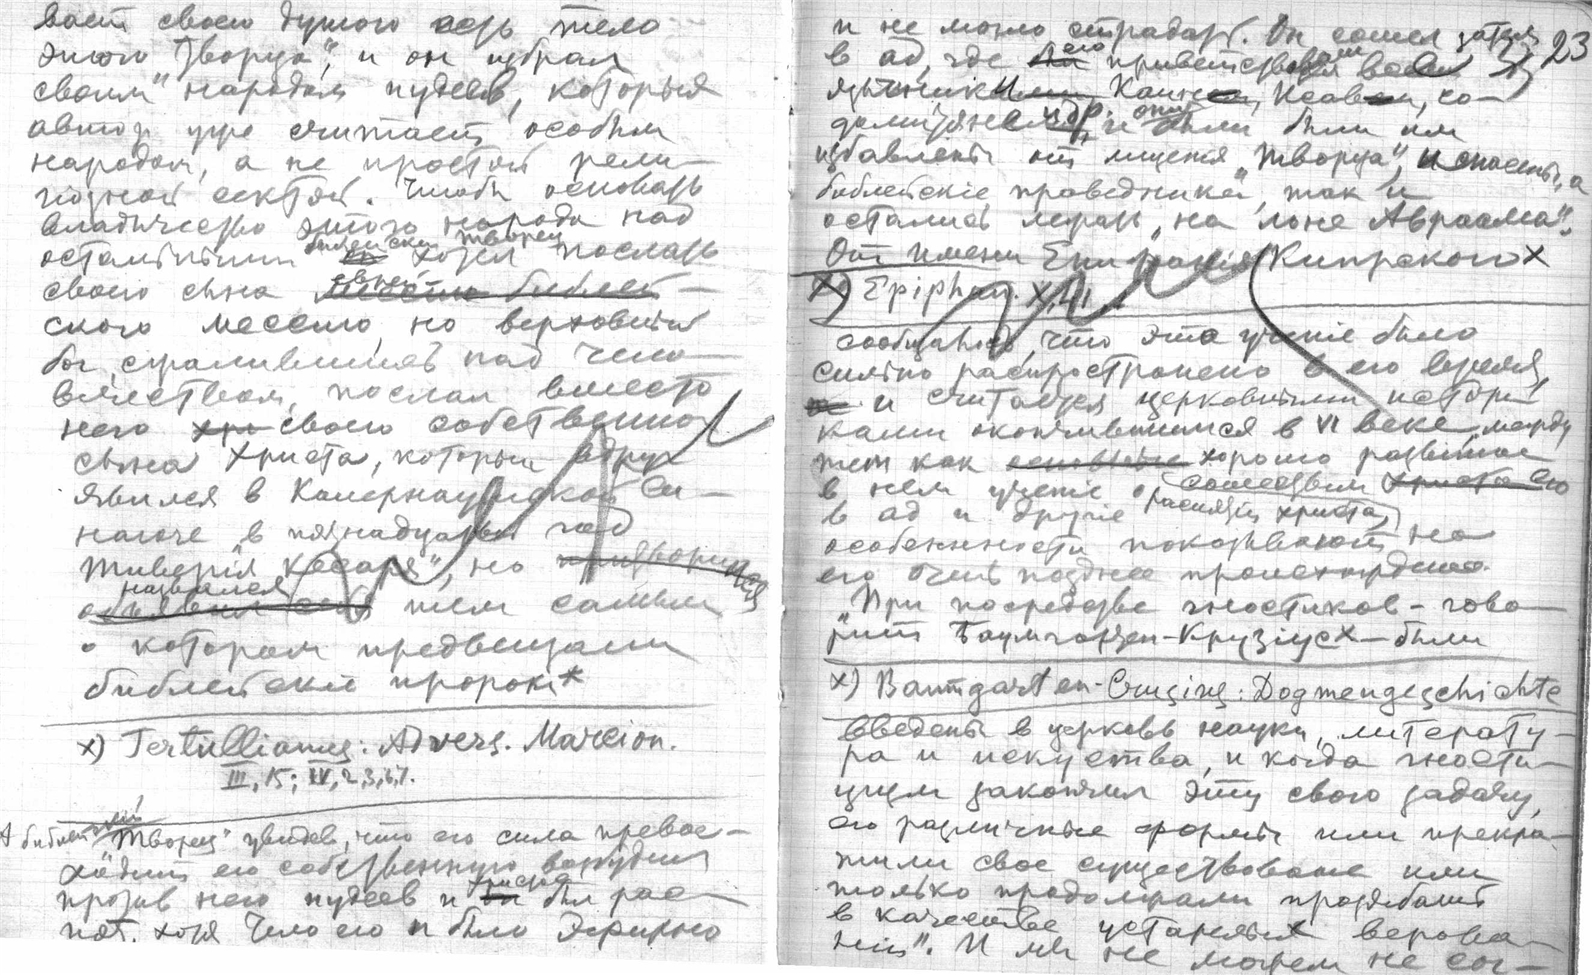 вает своего другого есть тело
этого „Творца“, и он избрал
своим народом иудеев, которых
автор уже считает особым
народом, а не простой рели-
гиозной сектой. Чтоб основать
владычество этого народа над
остальными библейский творец хотел послать
своего сына
ского мессию, но верховный
бог, сжалившийся над чело-
вечеством, послал вместо
него своего собственного
сына Христа, который вдруг
явился в Капернаумской си-
нагоге „в пятнадцатый год
Тиверия Кесаря“, но
назвался тем самым
о котором предвещали
библейские пророки*
x) Tertullianus: Advers. Marcion.
III, 15; IV, 2,3,6,7.
А библейский „Творец“ увидев, что его сила превос-
ходит его собственную возбудил
против него иудеев и Христос был рас-
пят, хотя тело его и было эфирно
23
и не могло страдать. Он сошел затем
в ад, где его приветствовали все
язычники Каин, Исав, со-
домитяне и др. и они были им
избавлены от мщения „Творца“, и спасены, а
библейские „праведники“ так и
остались лежать „на лоне Авраама“.
От имени Епифания Кипрского x
x) Epiphan. X, II,
сообщалось, что это учение было
сильно распространено в его время,
и считается церковными истори-
ками окончившимся в VI веке, между
тем как хорошо развитое
в нем учение о сошествии его
в ад и другие распятия Христа,
особенности показывают на
его очень позднее происхождение.
„При посредстве гностиков – гово-
рит Баумгартен-Крузиус x – были
x) Baumgarten-Crusius: Dogmengeschichte
введены в церковь науки, литерату-
ра и искуства, и когда гности-
цизм закончил эту свою задачу,
его различные формы или прекра-
тили свое существование или
только продолжали прозябать
в качестве устарелых верова-
ний“. И мы не можем не сог-